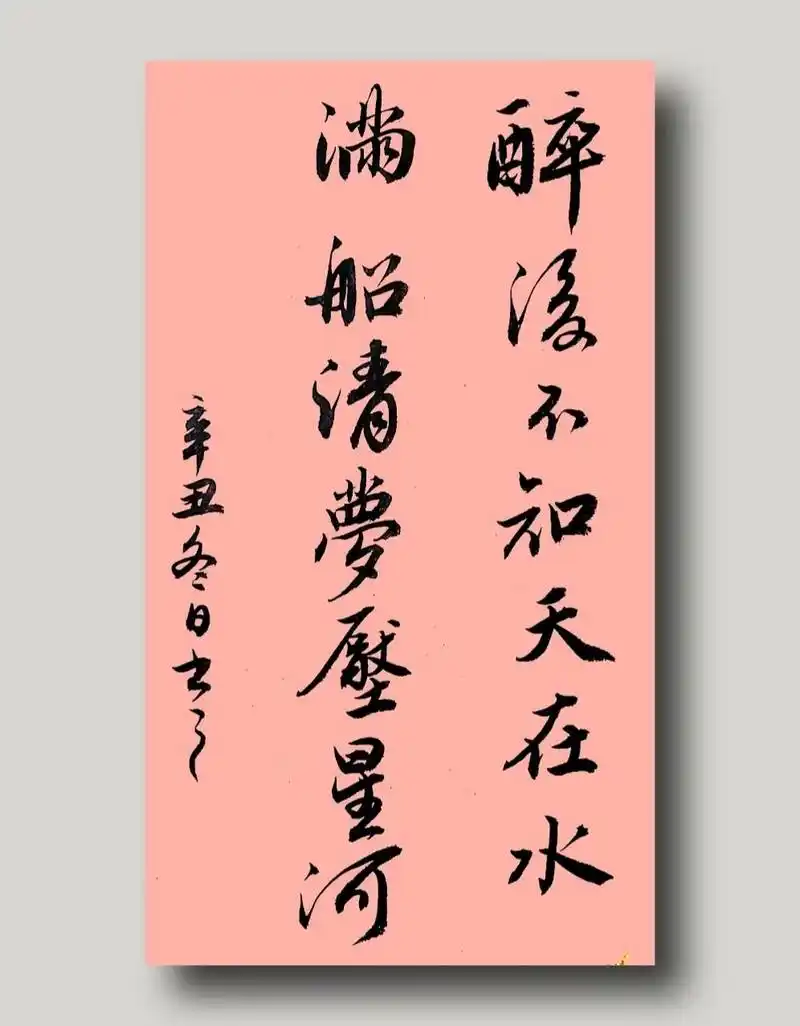 醉後不知天在水
滿船清夢壓星河
辛丑冬日書之